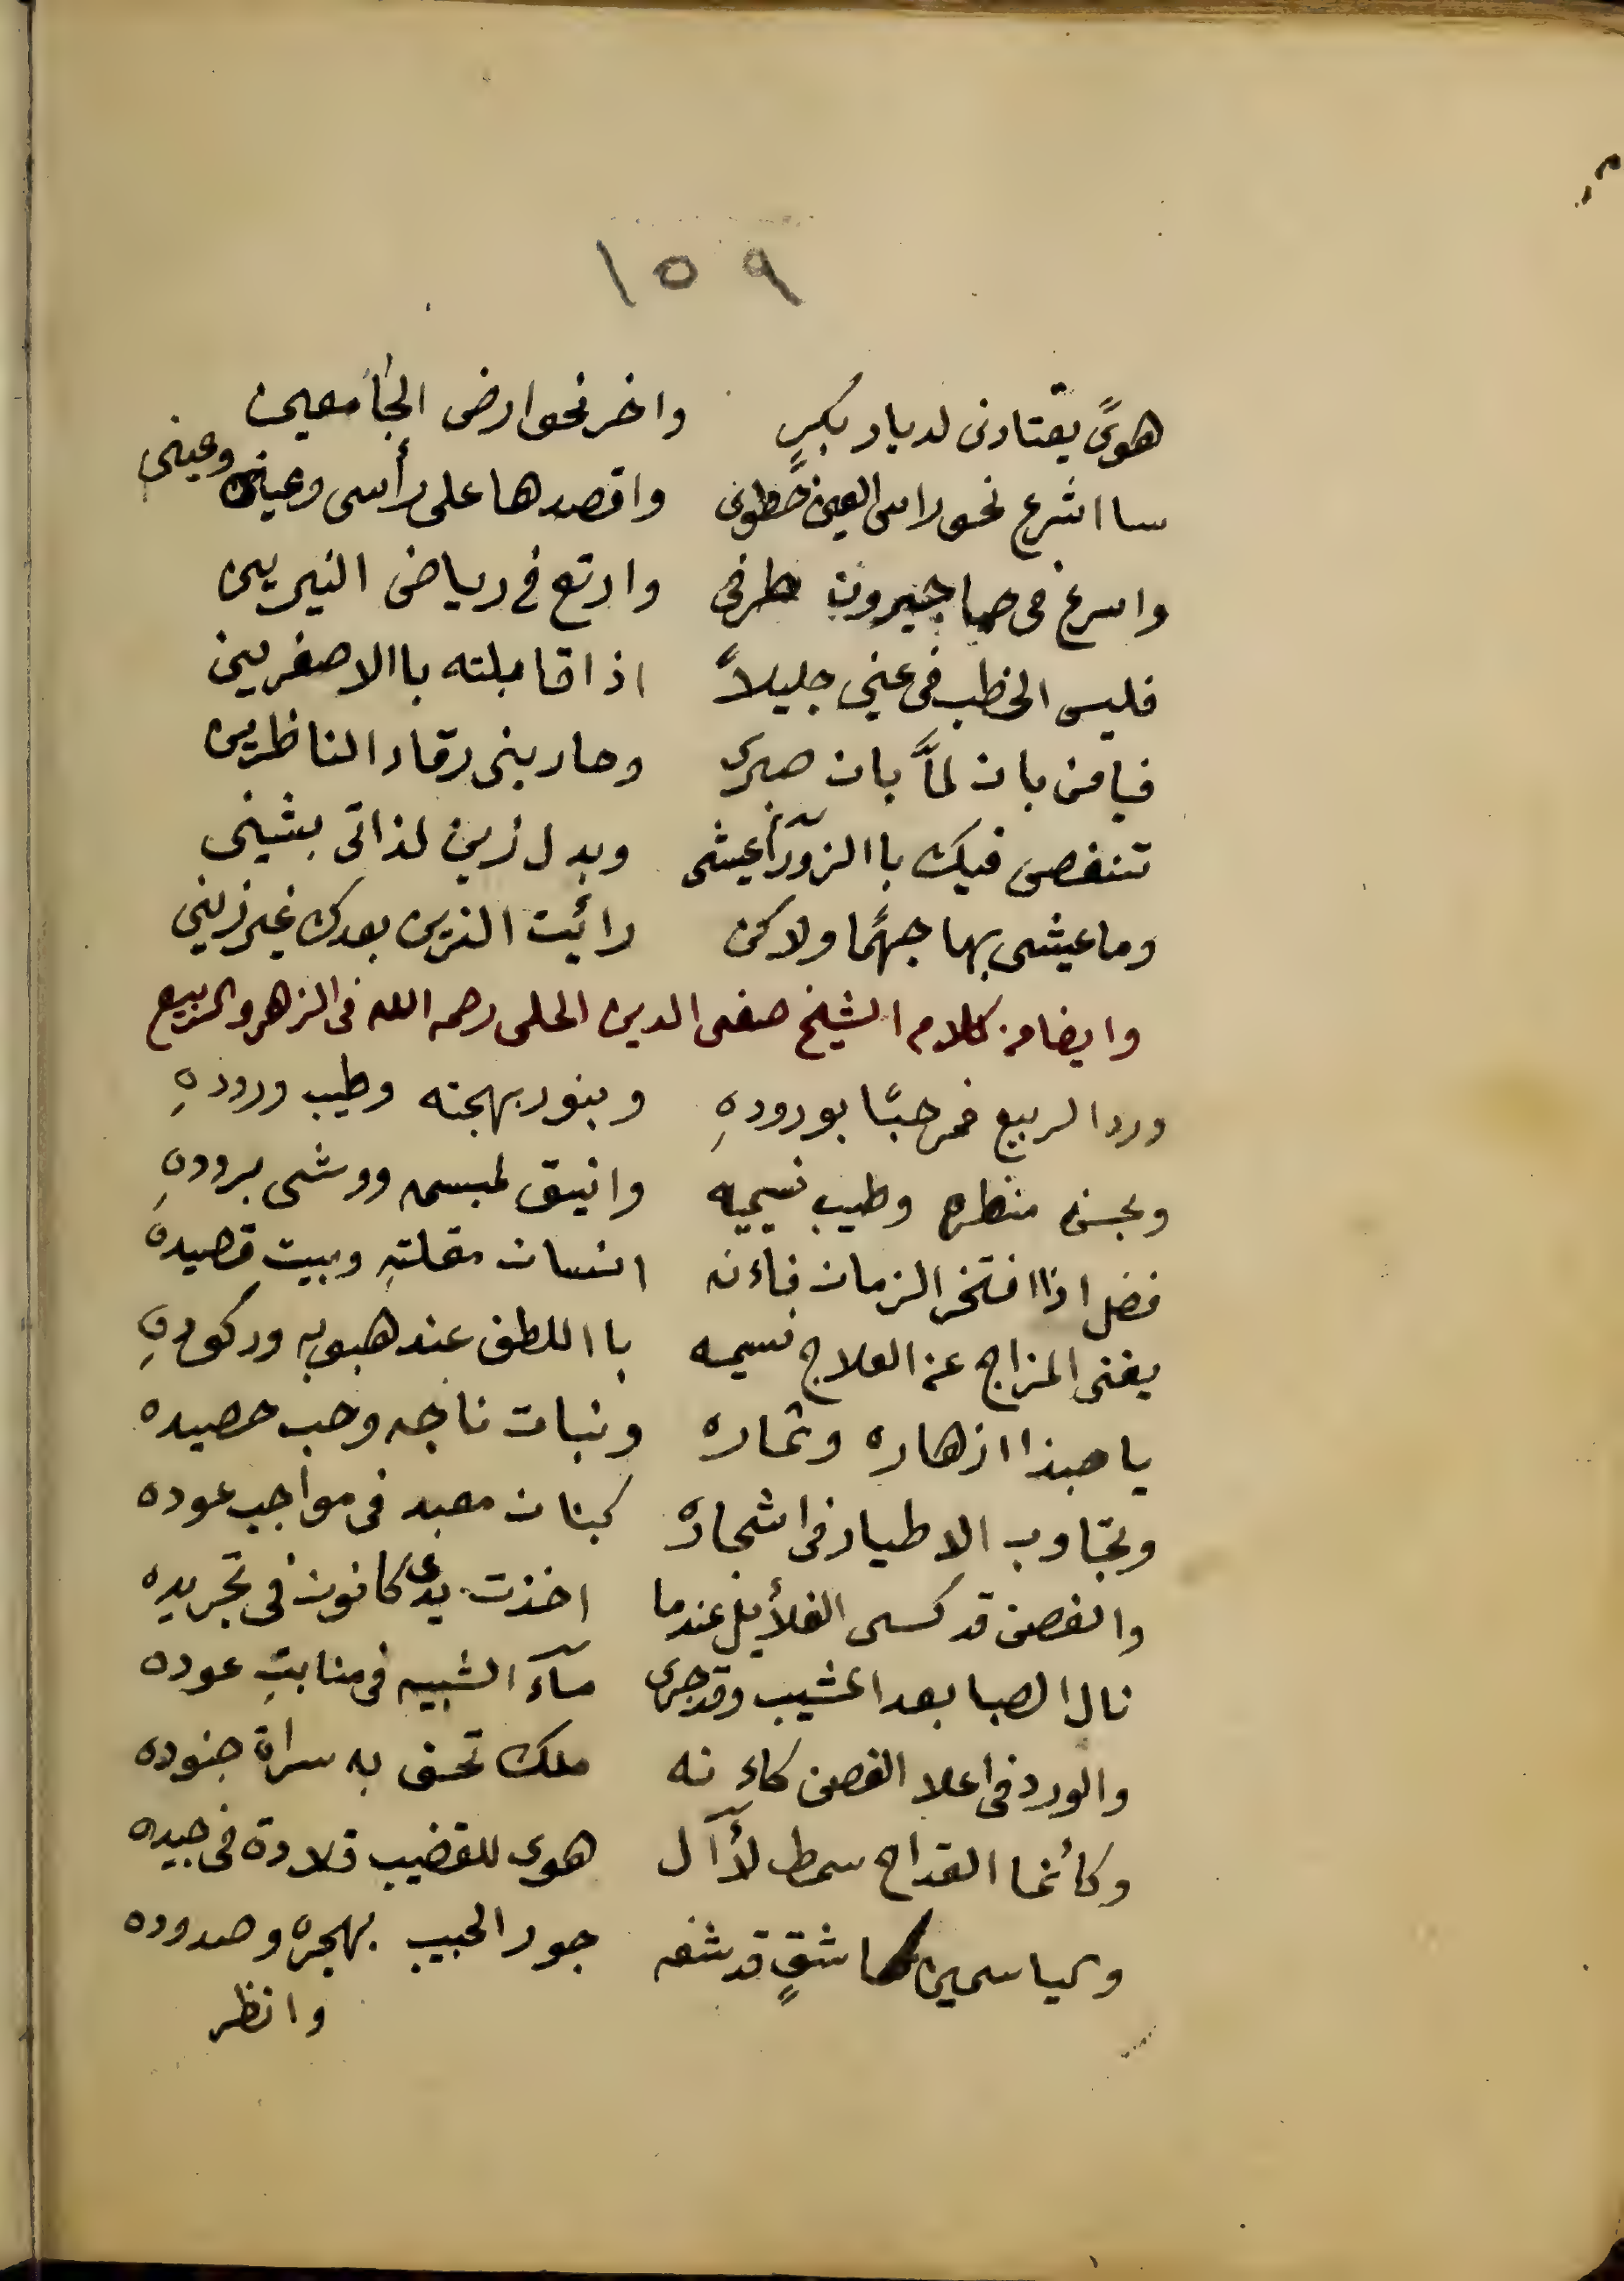 ١٥٩
هوىً يقتادنى لديار بكرٍ واخر نحوا رض الجامعين
سا اشرع نحو راس العين خطوى واقصدها على رأسى وعينى وعينى
واسرع فى حما جيرون طرفى وارتع فى رياض النيربين
فليس الخطب فى عينى جليلاً اذا قابلته باالاصغرين
فيامن بان لمَّا بان صبرى وحاربنى رقاد الناظرين
تنغص فيك باالزورآء عيشى وبدل زين لذاتى بشينى
وما عيشى بها جهمًا ولاكن رائيت الزين بعدك غير زينى
وايضا من كلام الشيخ صفى الدين الحلى رحمه الله فى الزهر والربيع
ورد الربيع فمرحبًا بورودهِ وبنور بهجته وطيب ورودهِ
وبحسن منظره وطيب نسيمه وانيق لمبسمه ووشى برودهِ
فضل اذا افتخر الزمان فاءنه انسان مقلتهِ وبيت قصيده
يغنى المزاج عن العلاج نسيمه باالطف عند هبوبه وركودهِ
يا حبذا ازهاره وثماره ونبات ناجه وحب حصيده
وتجاوب الاطيار فى اشجاره كبنات معبد فى مواجب عوده
والغصن قد كسى الغلأيل عندما اخذت يدى كانون فى تجريده
نال الصبا بعد المشيب وقد جرى مآء الشبيبه فى منابتِ عوده
والورد فى اعلا الغصن كاءنه ملك تحف به سراة جنوده
وكأنما القداح سمط لأآل هوى للقضيب قلادة فى جيده
والياسمين كعاشقٍ قد شفه جور الحبيب بهجره وصدوده
وانظر